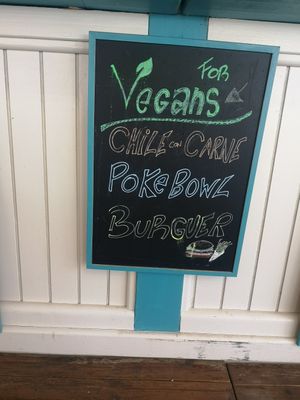 FOR
VEGANS
CHILE con CARNE
POKE BOWL
BURGUER